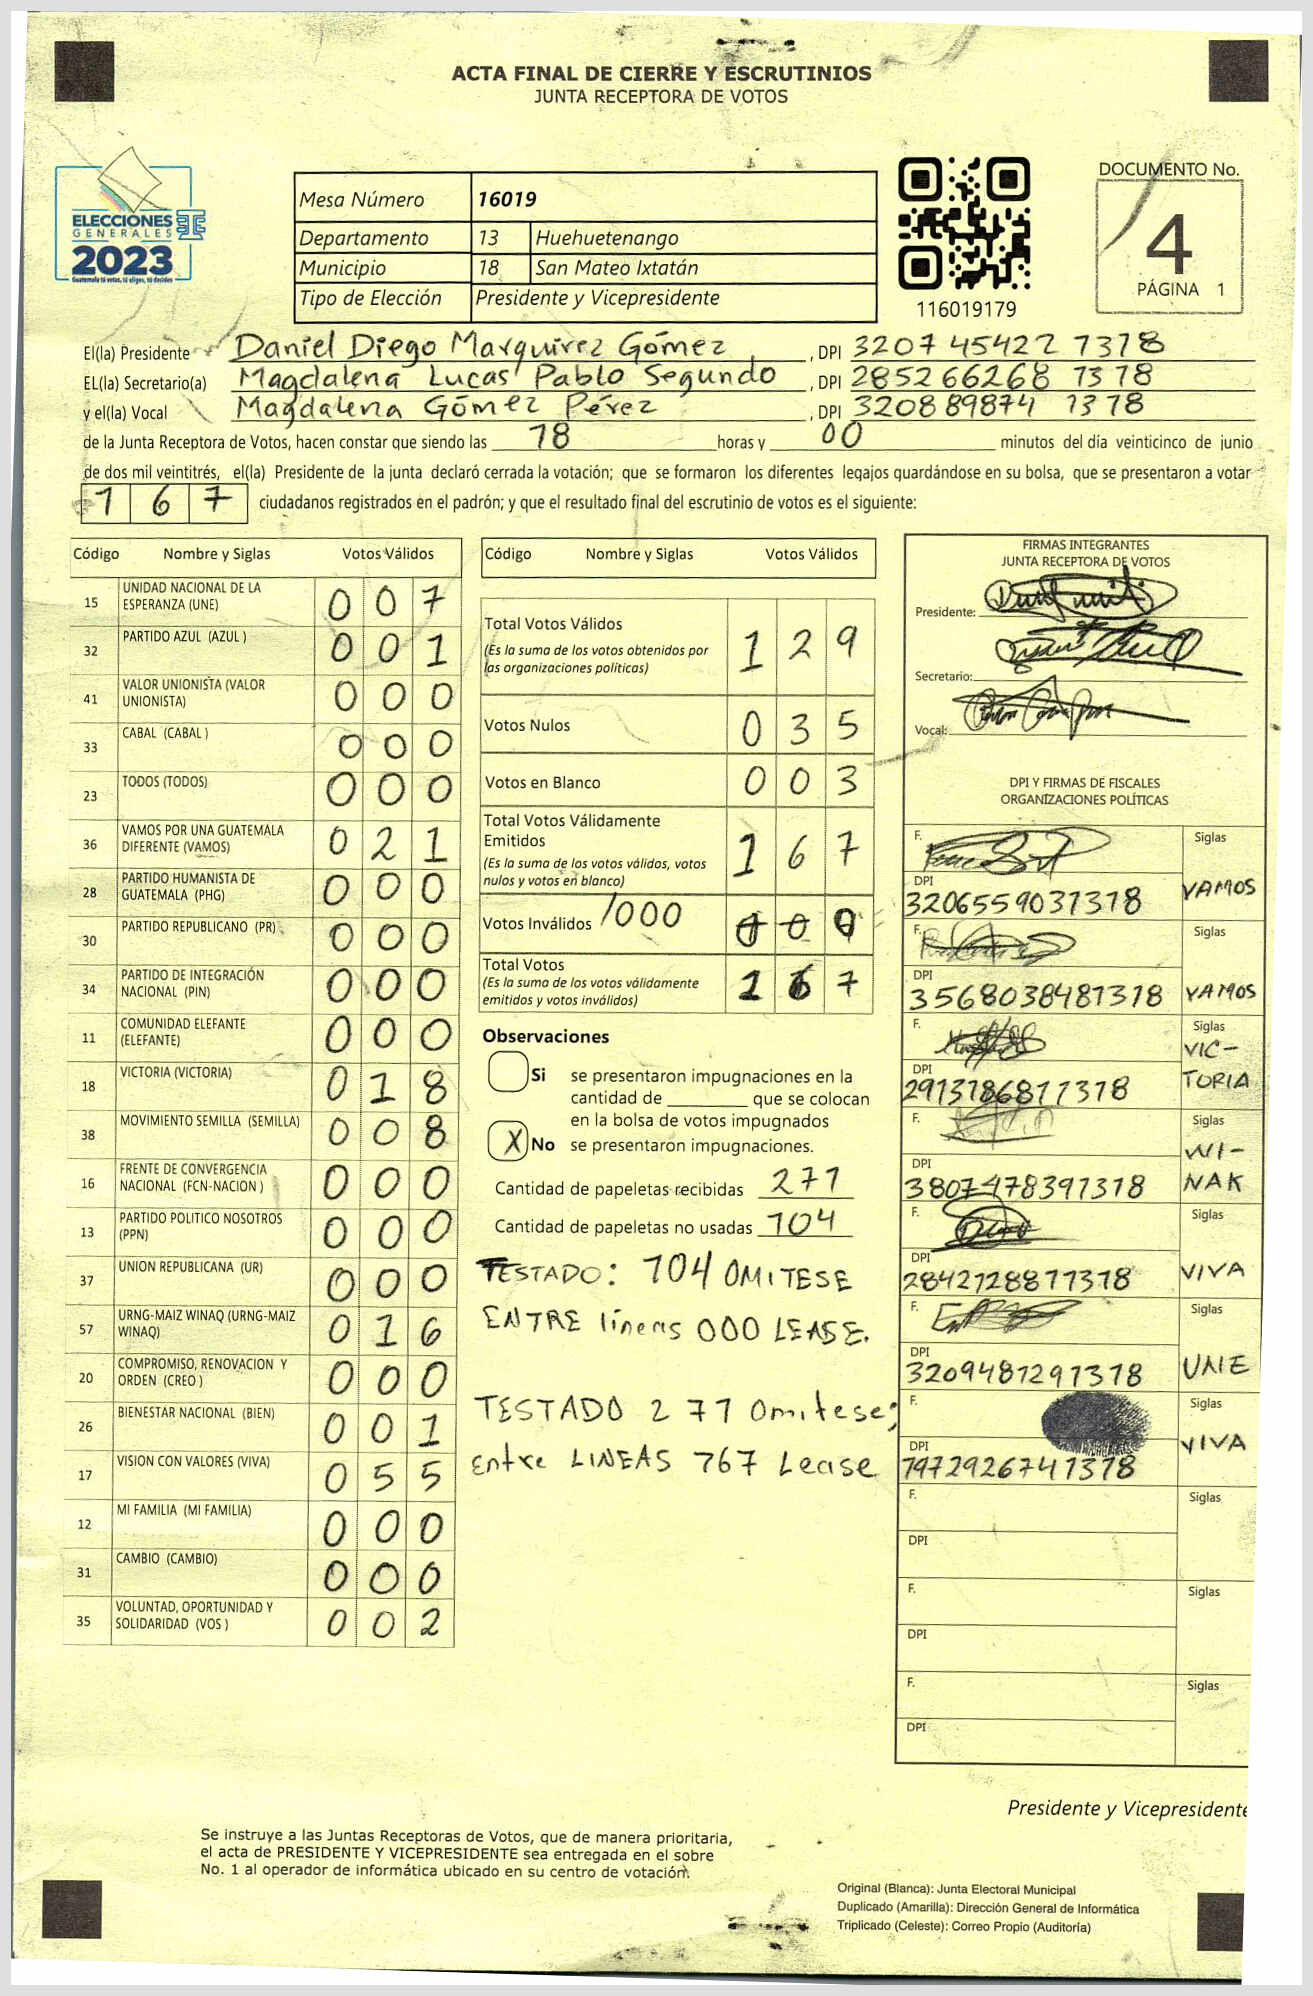 ACTA FINAL DE CIERRE Y ESCRUTINIOS
JUNTA RECEPTORA DE VOTOS
ELECCIONES
GENERALES
2023
Guatemala tú votas, tú eliges, tú decides
Mesa Número 16019
Departamento 13 Huehuetenango
Municipio 18 San Mateo Ixtatán
Tipo de Elección Presidente y Vicepresidente
116019179
DOCUMENTO No.
4
PÁGINA 1
El(la) Presidente Daniel Diego Marquirez Gómez, DPI 3207 45422 1318
EL(la) Secretario(a) Magdalena Lucas Pablo Segundo, DPI 285266268 1318
y el(la) Vocal Magdalena Gómez Pérez, DPI 320889874 1318
de la Junta Receptora de Votos, hacen constar que siendo las 18 horas y 00 minutos del día veinticinco de junio
de dos mil veintitrés, el(la) Presidente de la junta declaró cerrada la votación; que se formaron los diferentes legajos guardándose en su bolsa, que se presentaron a votar
167 ciudadanos registrados en el padrón; y que el resultado final del escrutinio de votos es el siguiente:
Código Nombre y Siglas Votos Válidos
15 UNIDAD NACIONAL DE LA ESPERANZA (UNE) 007
32 PARTIDO AZUL (AZUL ) 001
41 VALOR UNIONISTA (VALOR UNIONISTA) 000
33 CABAL (CABAL ) 000
23 TODOS (TODOS) 000
36 VAMOS POR UNA GUATEMALA DIFERENTE (VAMOS) 021
28 PARTIDO HUMANISTA DE GUATEMALA (PHG) 000
30 PARTIDO REPUBLICANO (PR) 000
34 PARTIDO DE INTEGRACIÓN NACIONAL (PIN) 000
11 COMUNIDAD ELEFANTE (ELEFANTE) 000
18 VICTORIA (VICTORIA) 018
38 MOVIMIENTO SEMILLA (SEMILLA) 008
16 FRENTE DE CONVERGENCIA NACIONAL (FCN-NACION ) 000
13 PARTIDO POLITICO NOSOTROS (PPN) 000
37 UNION REPUBLICANA (UR) 000
57 URNG-MAIZ WINAQ (URNG-MAIZ WINAQ) 016
20 COMPROMISO, RENOVACION Y ORDEN (CREO ) 000
26 BIENESTAR NACIONAL (BIEN) 001
17 VISION CON VALORES (VIVA) 055
12 MI FAMILIA (MI FAMILIA) 000
31 CAMBIO (CAMBIO) 000
35 VOLUNTAD, OPORTUNIDAD Y SOLIDARIDAD (VOS ) 002
Código Nombre y Siglas Votos Válidos
Total Votos Válidos 129
(Es la suma de los votos obtenidos por
las organizaciones políticas)
Votos Nulos 035
Votos en Blanco 003
Total Votos Válidamente
Emitidos 167
(Es la suma de los votos válidos, votos
nulos y votos en blanco)
Votos Inválidos /000
Total Votos 167
(Es la suma de los votos válidamente
emitidos y votos inválidos)
Observaciones
Si se presentaron impugnaciones en la
cantidad de ________ que se colocan
en la bolsa de votos impugnados
X No se presentaron impugnaciones.
Cantidad de papeletas recibidas 271
Cantidad de papeletas no usadas 104
TESTADO: 104 OMITESE
ENTRE lineas 000 LEASE.
TESTADO 2 71 Omitese;
entre LINEAS 167 Lease
FIRMAS INTEGRANTES
JUNTA RECEPTORA DE VOTOS
Presidente:
Secretario:
Vocal:
DPI Y FIRMAS DE FISCALES
ORGANIZACIONES POLÍTICAS
F. Siglas
DPI 3206559031318 VAMOS
F. Siglas
DPI 3568038481318 VAMOS
F. Siglas
DPI 2913186811318 VICTORIA
F. Siglas
DPI 3807478391318 WINAK
F. Siglas
DPI 2842128871318 VIVA
F. Siglas
DPI 3209481291318 UNE
F. Siglas
DPI 1972926741318 VIVA
F. Siglas
DPI
F. Siglas
DPI
F. Siglas
DPI
Presidente y Vicepresidente
Se instruye a las Juntas Receptoras de Votos, que de manera prioritaria,
el acta de PRESIDENTE Y VICEPRESIDENTE sea entregada en el sobre
No. 1 al operador de informática ubicado en su centro de votación.
Original (Blanca): Junta Electoral Municipal
Duplicado (Amarilla): Dirección General de Informática
Triplicado (Celeste): Correo Propio (Auditoría)